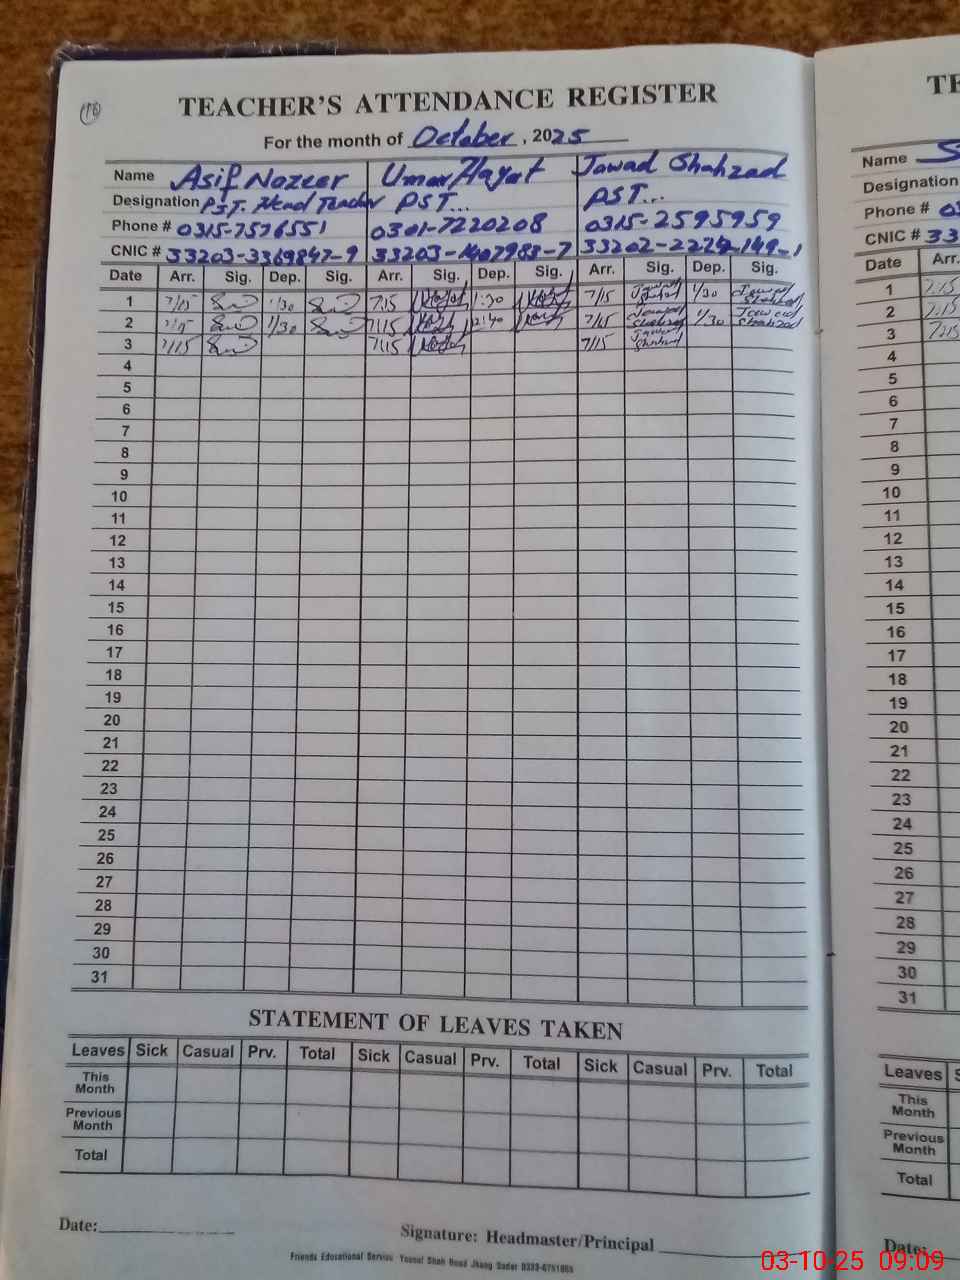 18
TEACHER'S ATTENDANCE REGISTER
For the month of October, 2025
Name Asif Nazeer Umar Hayat Jawad Shahzad
Designation P.S.T. Head Teacher PST... PST...
Phone # 0315-7576551 0301-7220208 0315-2595959
CNIC # 33203-3369847-9 33203-1407983-7 33202-2224149-1
Date Arr. Sig. Dep. Sig. Arr. Sig. Dep. Sig. Arr. Sig. Dep. Sig.
1 7/15 1/30 7:15 1:30 7/15 Jawad Shahzad 1/30 Jawad Shahzad
2 7/15 1/30 7/15 12:40 7/15 Jawad Shahzad 1/30 Jawad Shahzad
3 7/15 7/15 7/15 Jawad Shahzad
4
5
6
7
8
9
10
11
12
13
14
15
16
17
18
19
20
21
22
23
24
25
26
27
28
29
30
31
STATEMENT OF LEAVES TAKEN
Leaves Sick Casual Prv. Total Sick Casual Prv. Total Sick Casual Prv. Total
This Month
Previous Month
Total
Date:
Signature: Headmaster/Principal
Friends Educational Yousaf Shah Road Jhang Sader
TE
Name
Designation
Phone # 03
CNIC # 33
Date Arr.
1 7:15
2 7:15
3 7:15
4
5
6
7
8
9
10
11
12
13
14
15
16
17
18
19
20
21
22
23
24
25
26
27
28
29
30
31
Leaves S
This Month
Previous Month
Total
Date:
03-10-25 09:09